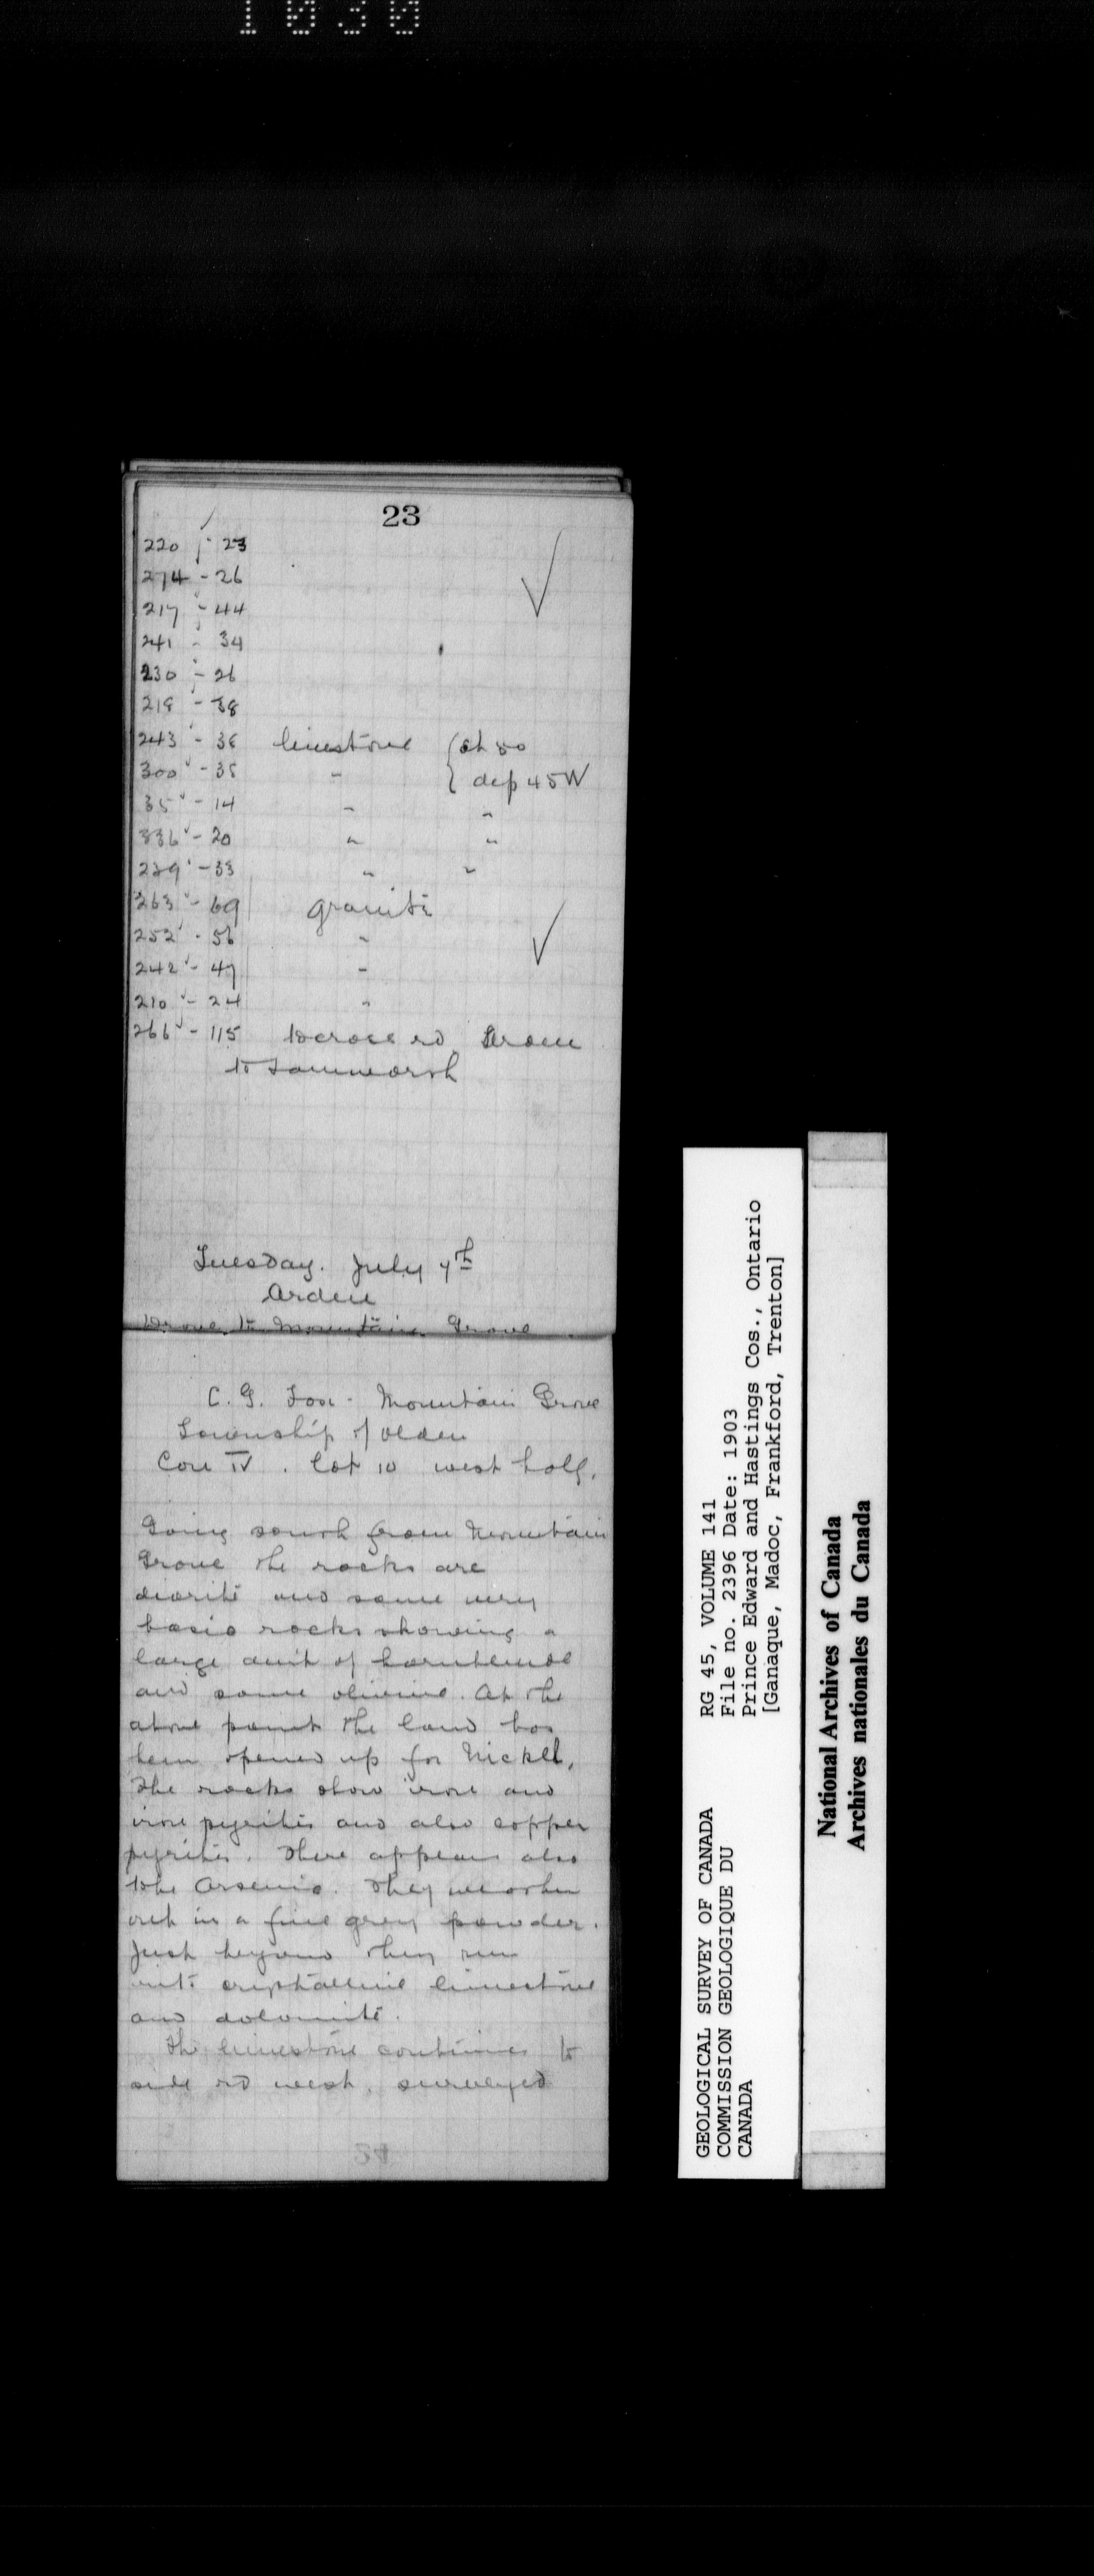 1030
23
220 - 23
274 - 26
217 - 44
241 - 34
230 - 26
218 - 38
243 - 36 limestone
300 - 35 " dip 45 W
35 - 14 " "
336 - 20 " "
239 - 33 " "
263 - 69 granite
252 - 56 "
242 - 47 "
210 - 24 "
266 - 115 to cross rd
to Tamworth
Tuesday. July 7th
Arden
Drove to Mountain Grove
C. G. Fox - Mountain Grove
Township of Olden
Con IV. lot 10 west half.
Going south from Mountain
Grove the rocks are
diorite and some very
basic rocks showing a
large amt of hornblende
and some olivine. At the
above point the land has
been opened up for Nickel,
The rocks show iron and
iron pyrites and also copper
pyrites. There appears also
to be Arsenic. They weather
out in a fine grey powder.
Just beyond they run
into crystalline limestone
and dolomite.
The limestone continues to
side rd west, surveyed
GEOLOGICAL SURVEY OF CANADA
COMMISSION GEOLOGIQUE DU
CANADA
RG 45, VOLUME 141
File no. 2396 Date: 1903
Prince Edward and Hastings Cos., Ontario
[Ganaque, Madoc, Frankford, Trenton]
National Archives of Canada
Archives nationales du Canada